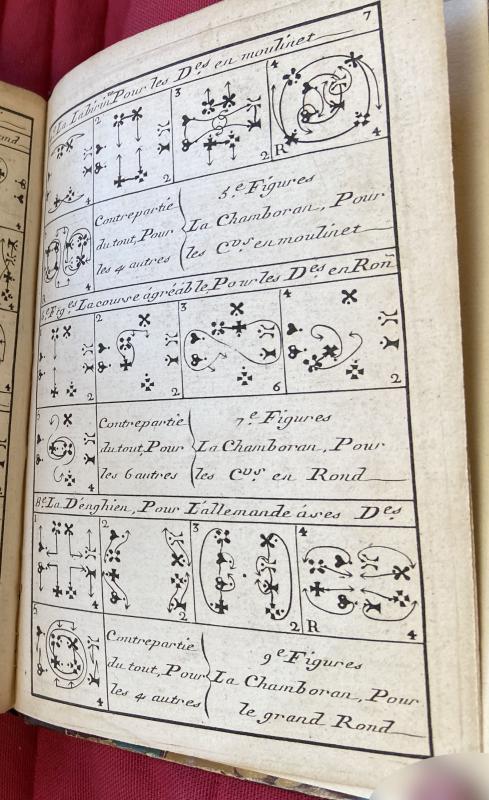 7
La Labirin^te Pour les D^es en moulinet
2
3
4
2
2
R
4
R
4
Contrepartie
du tout, Pour
les 4 autres
5^e Figures
La Chamboran, Pour
les C^vs en moulinet
6^e Fig^es La course agréable, Pour les D^es en Ron^d
2
3
4
2
2
6
2
5
4
Contrepartie
du tout, Pour
les 6 autres
7^e Figures
La Chamboran, Pour
les C^vs en Rond
8^e La D'enghien, Pour L'allemande à ses D^es
1
2
3
4
4
2
2
R
4
5
4
Contrepartie
du tout, Pour
les 4 autres
9^e Figures
La Chamboran, Pour
le grand Rond